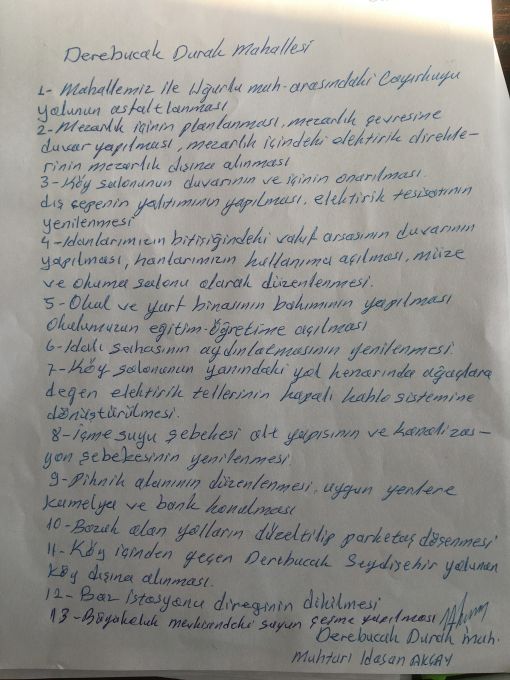 Derebucak Durak Mahallesi
1- Mahallemiz ile Uğurlu mah. arasındaki Çayırkuyu
yolunun asfaltlanması
2- Mezarlık içinin planlanması, mezarlık çevresine
duvar yapılması, mezarlık içindeki elektirik direkle-
rinin mezarlık dışına alınması
3- Köy salonunun duvarının ve içinin onarılması.
dış çepenin yalıtımının yapılması, elektirik tesisatının
yenilenmesi
4- Hanlarımızın bitişiğindeki vakıf arsasının duvarının
yapılması, hanlarımızın kullanıma açılması, müze
ve okuma salonu olarak düzenlenmesi.
5- Okul ve yurt binasının bakımının yapılması
Okulumuzun eğitim-öğretime açılması
6- Halı sahasının aydınlatmasının yenilenmesi.
7- Köy salonunun yanındaki yol kenarında ağaçlara
değen elektirik tellerinin kapalı kablo sistemine
dönüştürülmesi.
8- İçme suyu şebekesi alt yapısının ve kanalizas-
yon şebekesinin yenilenmesi.
9- Piknik alanının düzenlenmesi, uygun yerlere
kamelya ve bank konulması
10- Bozuk olan yolların düzeltilip parketaş döşenmesi
11- Köy içinden geçen Derebucak Seydişehir yolunun
köy dışına alınması.
12- Baz istasyonu direğinin dikilmesi
13- mevkisendeki suyun çeşme yapılması
Derebucak Durak mah.
Muhtarı Hasan AKÇAY